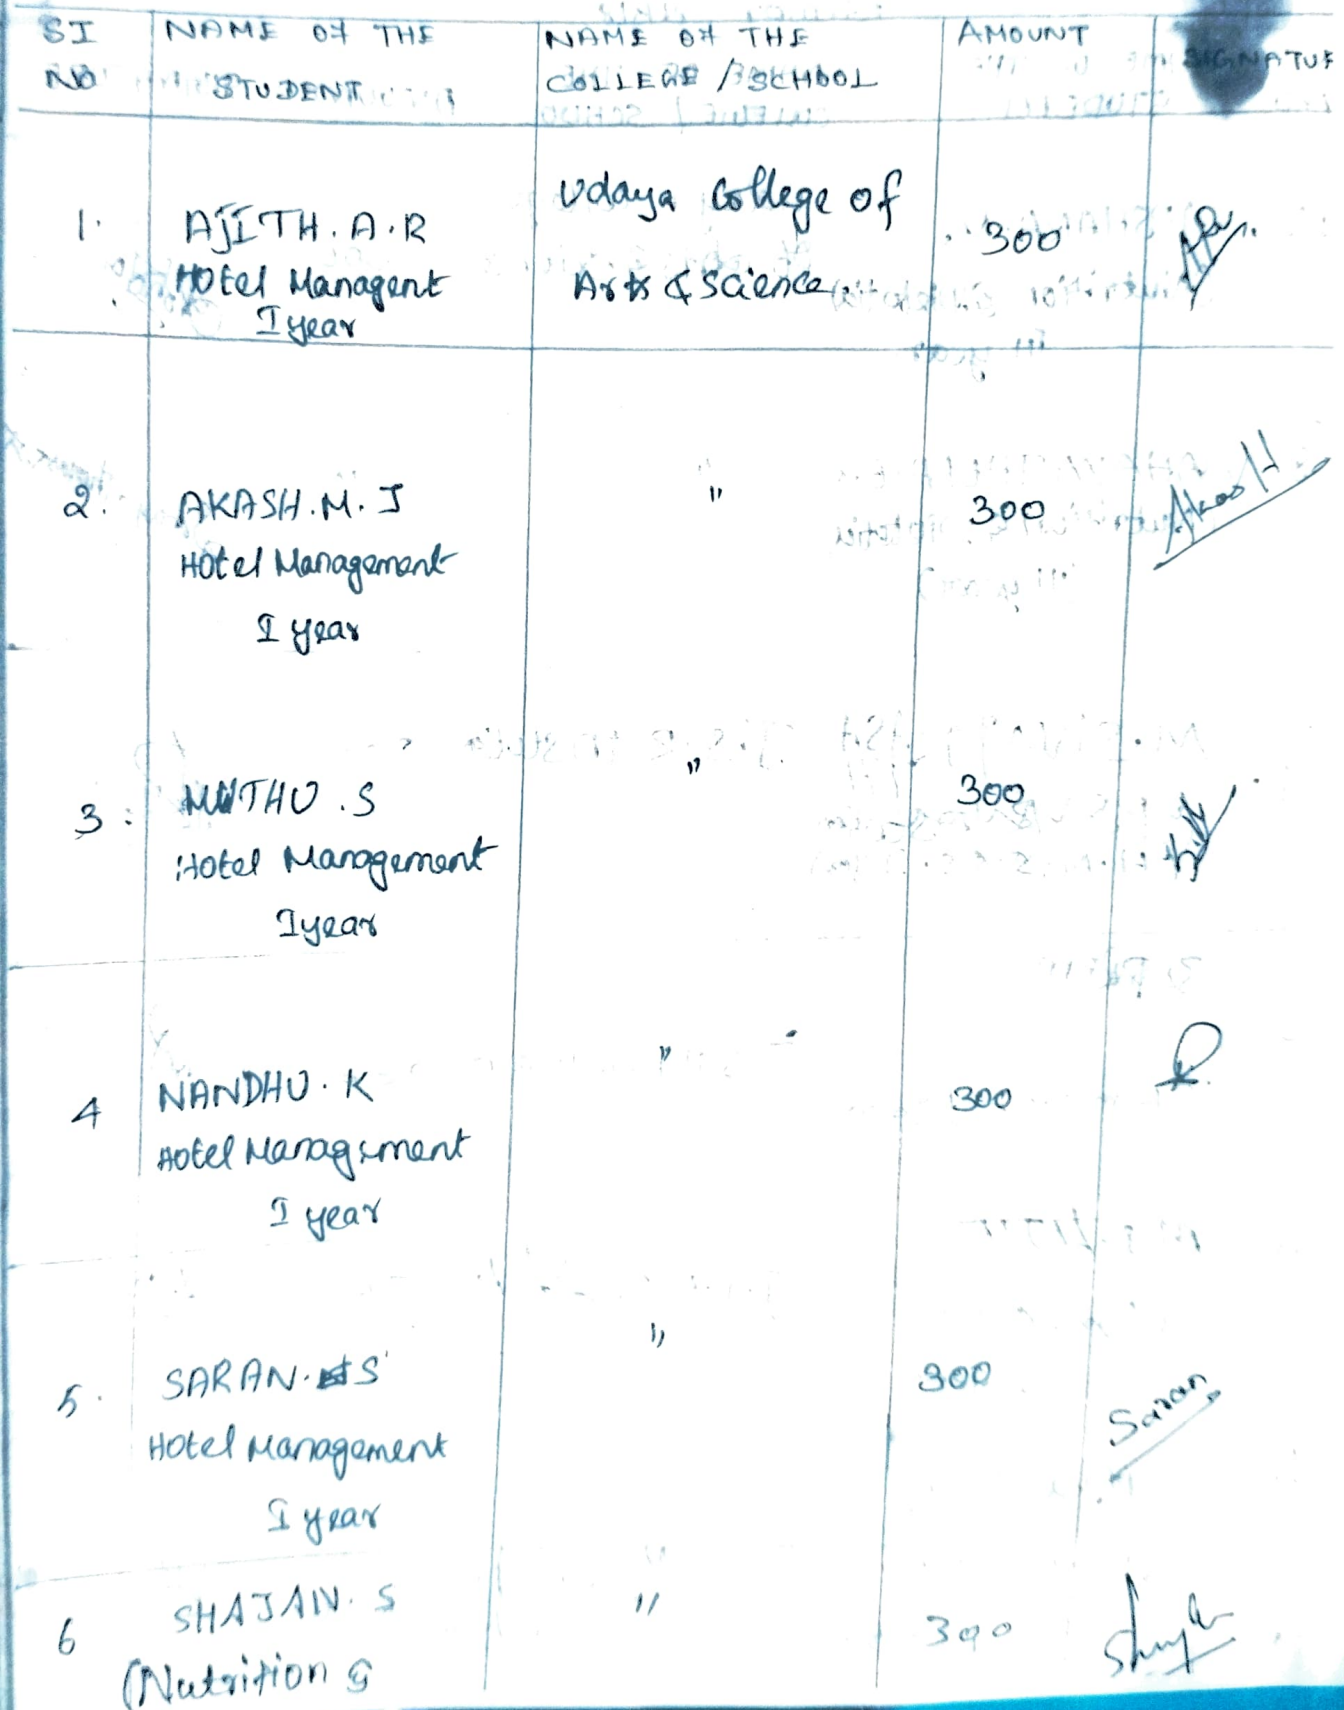 SI NO
NAME OF THE STUDENT
NAME OF THE COLLEGE / SCHOOL
AMOUNT
SIGNATUR
1. AJITH. A. R
Hotel Managent
I year
Udaya College of
Arts & Science.
300
2. AKASH. M. J
Hotel Management
I year
"
300
Akash
3. MUTHU . S
Hotel Management
I year
"
300
4 NANDHU. K
Hotel Management
I year
"
300
5. SARAN. S
Hotel Management
I year
"
300
Saran
6 SHAJAN. S
(Nutrition &
"
300